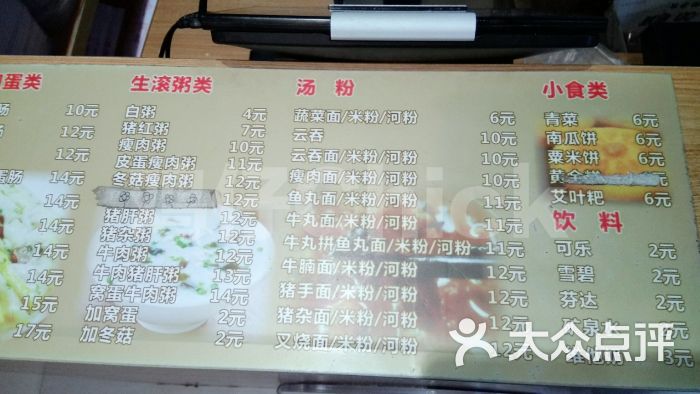 蛋类
肠 10元
肠 12元
12元
蛋肠 14元
14元
12元
14元
14元
14元
15元
17元
生滚粥类
白粥 4元
猪红粥 7元
瘦肉粥 10元
皮蛋瘦肉粥 11元
冬菇瘦肉粥 12元
12元
猪肝粥 12元
猪杂粥 12元
牛肉粥 12元
牛肉猪肝粥 13元
窝蛋牛肉粥 14元
加窝蛋 2元
加冬菇 2元
汤 粉
蔬菜面/米粉/河粉 6元
云吞 10元
云吞面/米粉/河粉 10元
瘦肉面/米粉/河粉 10元
鱼丸面/米粉/河粉 11元
牛丸面/米粉/河粉 11元
牛丸拼鱼丸面/米粉/河粉 11元
牛腩面/米粉/河粉 12元
猪手面/米粉/河粉 12元
猪杂面/米粉/河粉 12元
叉烧面/米粉/河粉 12元
小食类
青菜 6元
南瓜饼 6元
粟米饼 6元
黄金 6元
艾叶粑 6元
饮 料
可乐 2元
雪碧 2元
芬达 2元
矿泉水 2元
维他奶 3元
大众点评